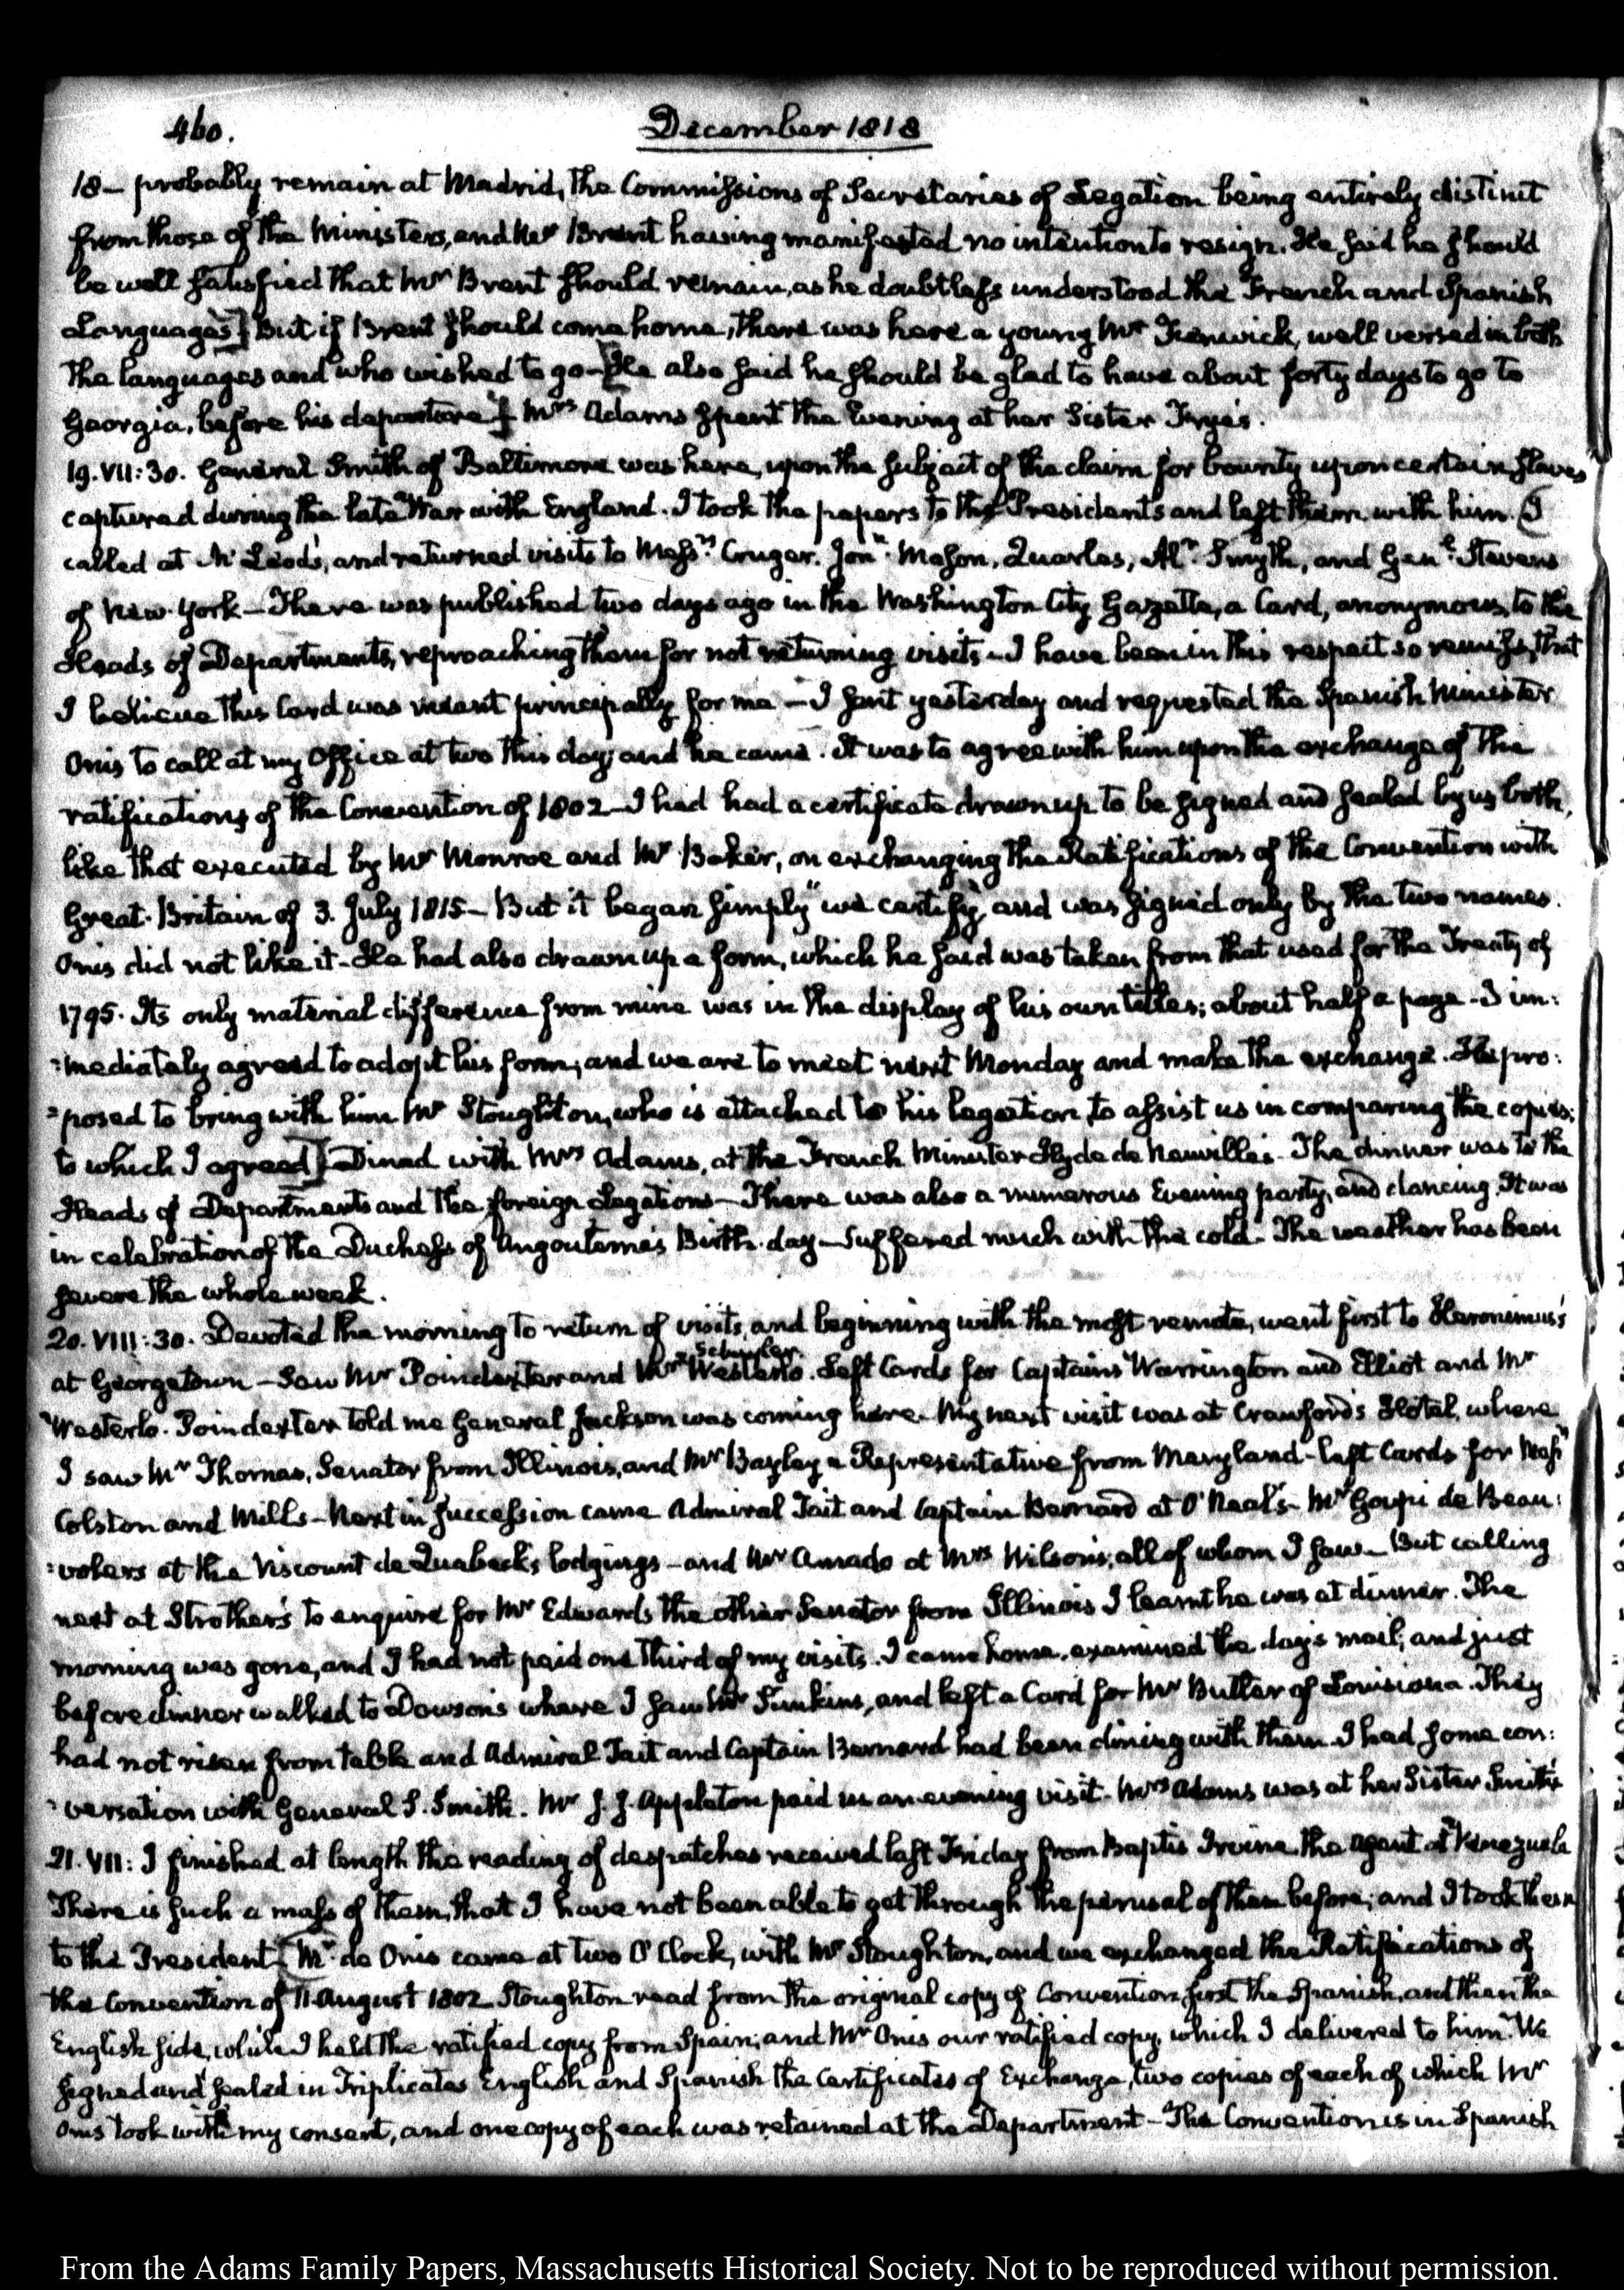 460.
December 1818
18 – probably remain at Madrid, the Commissions of Secretaries of Legation being entirely distinct
from those of the Ministers, and Mr Brent having manifested no intention to resign. He said he should
be well satisfied that Mr Brent should remain, as he doubtless understood the French and Spanish
Languages] But if Brent should come home, there was here a young Mr Fenwick, well versed in both
the languages and who wished to go – [He also said he should be glad to have about forty days to go to
Georgia, before his departure] Mrs Adams spent the Evening at her Sister Frye's.
19. VII: 30. General Smith of Baltimore was here, upon the subject of the claim for bounty upon certain slaves
captured during the late War with England. I took the papers to the Presidents and left them with him. [I
called at McLeod's, and returned visits to Messrs Cruger. Jonn Mason, Quarles, Alr Smyth, and Genl Stevens
of New-York – There was published two days ago in the Washington City Gazette, a Card, anonymous, to the
Heads of Departments, reproaching them for not returning visits – I have been in this respect so remiss, that
I believe this Card was meant principally for me – I sent yesterday and requested the Spanish Minister
Onis to call at my Office at two this day; and he came. It was to agree with him upon the exchange of the
ratifications of the Convention of 1802 – I had had a certificate drawn up to be signed and sealed by us both,
like that executed by Mr Monroe and Mr Baker, on exchanging the Ratifications of the Convention with
Great-Britain of 3. July 1815 – But it began simply "we certify" and was signed only by the two names.
Onis did not like it – He had also drawn up a form, which he said was taken from that used for the Treaty of
1795. Its only material difference from mine was in the display of his own titles; about half a page – I im:
:mediately agreed to adopt his form; and we are to meet next Monday and make the exchange. He pro:
:posed to bring with him Mr Stoughton, who is attached to his legation, to assist us in comparing the copies;
to which I agreed] Dined with Mrs Adams, at the French Minister Hyde de Neuville's – The dinner was to the
Heads of Departments and the foreign Legations – There was also a numerous Evening party, and dancing. It was
in celebration of the Duchess of Angouleme's Birth-day – Suffered much with the cold – The weather has been
severe the whole week.
20. VIII: 30. Devoted the morning to return of visits, and beginning with the most remote, went first to Heronimus's
at Georgetown – Saw Mr Poindexter and Mr Westerlo Schuyler. Left Cards for Captains Warrington and Elliot and Mr
Westerlo. Poindexter told me General Jackson was coming here. My next visit was at Crawford's Hotel, where
I saw Mr Thomas, Senator from Illinois, and Mr Bayley a Representative from Maryland – left Cards for Messrs
Colston and Mills – Next in succession came Admiral Tait and Captain Bernard at O'Neal's – Mr de Beau:
:volers at the Viscount de Quabeck's lodgings – and Mr Amado at Mrs Wilson's, all of whom I saw – But calling
next at Strother's to enquire for Mr Edwards the other Senator from Illinois I learnt he was at dinner. The
morning was gone, and I had not paid one third of my visits. I came home, examined the day's mail, and just
before dinner walked to Dowson's where I saw Mr Simkins, and left a Card for Mr Butler of Louisiana. They
had not risen from table and Admiral Tait and Captain Bernard had been dining with them. I had some con:
:versation with General S. Smith. Mr J. J. Appleton paid us an evening visit – Mrs Adams was at her Sister Smith's
21. VII: I finished at length the reading of despatches received last Friday from Baptis Irvine the agent at Venezuela
There is such a mass of them, that I have not been able to get through the perusal of them before; and I took them
to the President [Mr de Onis came at two O'Clock, with Mr Stoughton, and we exchanged the Ratifications of
the Convention of 11. August 1802. Stoughton read from the original copy of Convention, first the Spanish, and then the
English side, while I held the ratified copy from Spain, and Mr Onis our ratified copy, which I delivered to him. We
signed and sealed in Triplicates English and Spanish the Certificates of Exchange, two copies of each of which Mr
Onis took with my consent, and one copy of each was retained at the Department – The Convention is in Spanish
From the Adams Family Papers, Massachusetts Historical Society. Not to be reproduced without permission.